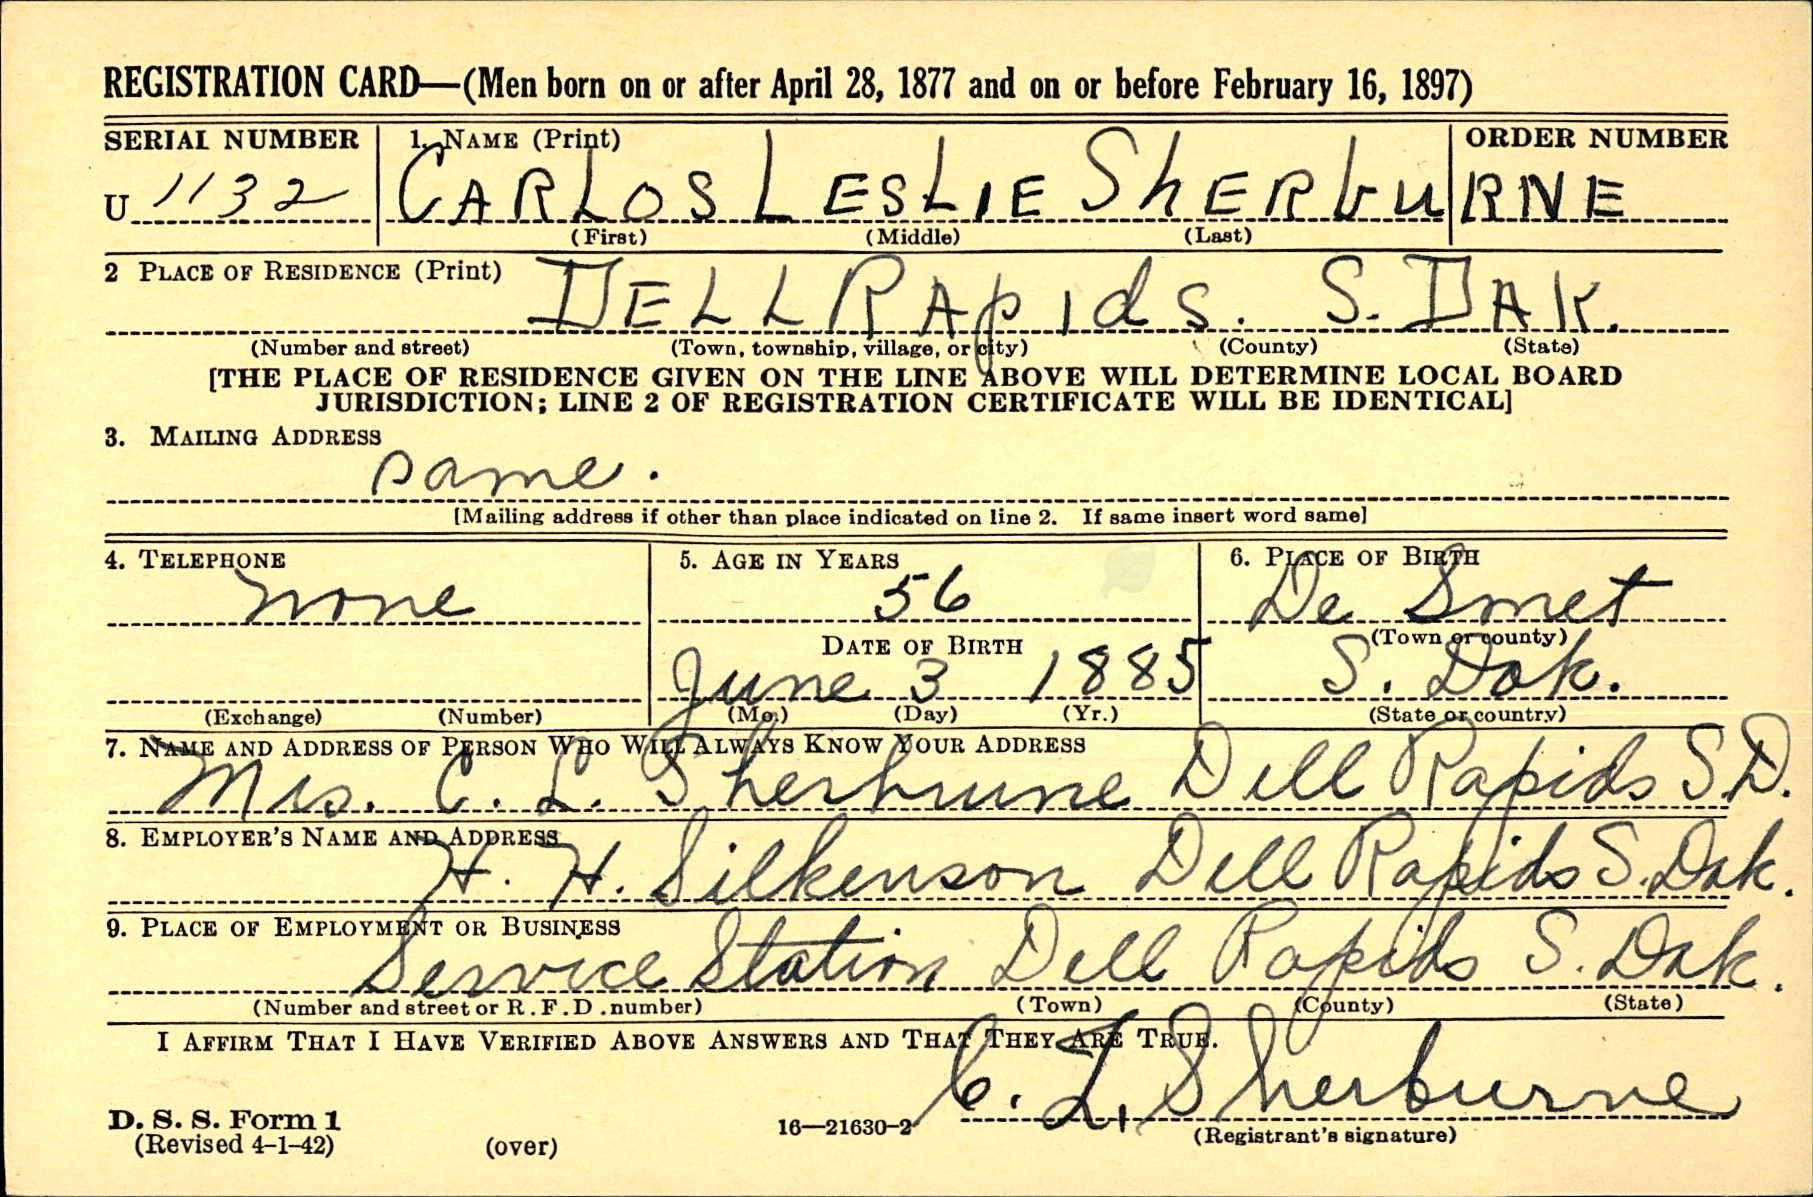 REGISTRATION CARD—(Men born on or after April 28, 1877 and on or before February 16, 1897)
SERIAL NUMBER 1. NAME (Print) ORDER NUMBER
U 1132 CARLOS LESLIE SHERBURNE
(First) (Middle) (Last)
2 PLACE OF RESIDENCE (Print) DELL RAPIDS. S. DAK.
(Number and street) (Town, township, village, or city) (County) (State)
[THE PLACE OF RESIDENCE GIVEN ON THE LINE ABOVE WILL DETERMINE LOCAL BOARD
JURISDICTION; LINE 2 OF REGISTRATION CERTIFICATE WILL BE IDENTICAL]
3. MAILING ADDRESS
same.
[Mailing address if other than place indicated on line 2. If same insert word same]
4. TELEPHONE 5. AGE IN YEARS 6. PLACE OF BIRTH
none 56 De Smet
DATE OF BIRTH (Town or county)
June 3 1885 S. Dak.
(Exchange) (Number) (Mo.) (Day) (Yr.) (State or country)
7. NAME AND ADDRESS OF PERSON WHO WILL ALWAYS KNOW YOUR ADDRESS
Mrs. C. L. Sherburne Dell Rapids S.D.
8. EMPLOYER'S NAME AND ADDRESS
H. H. Silkenson Dell Rapids S. Dak.
9. PLACE OF EMPLOYMENT OR BUSINESS
Service Station Dell Rapids S. Dak.
(Number and street or R.F.D. number) (Town) (County) (State)
I AFFIRM THAT I HAVE VERIFIED ABOVE ANSWERS AND THAT THEY ARE TRUE.
C. L. Sherburne
D. S. S. Form 1
(Revised 4-1-42) (over) 16—21630-2 (Registrant's signature)